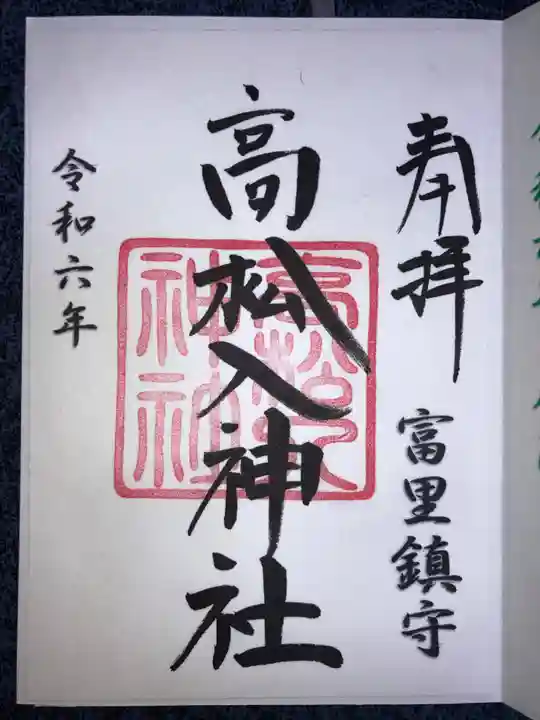 奉拝 富里鎮守
高松入神社
高松入
神社
令和六年